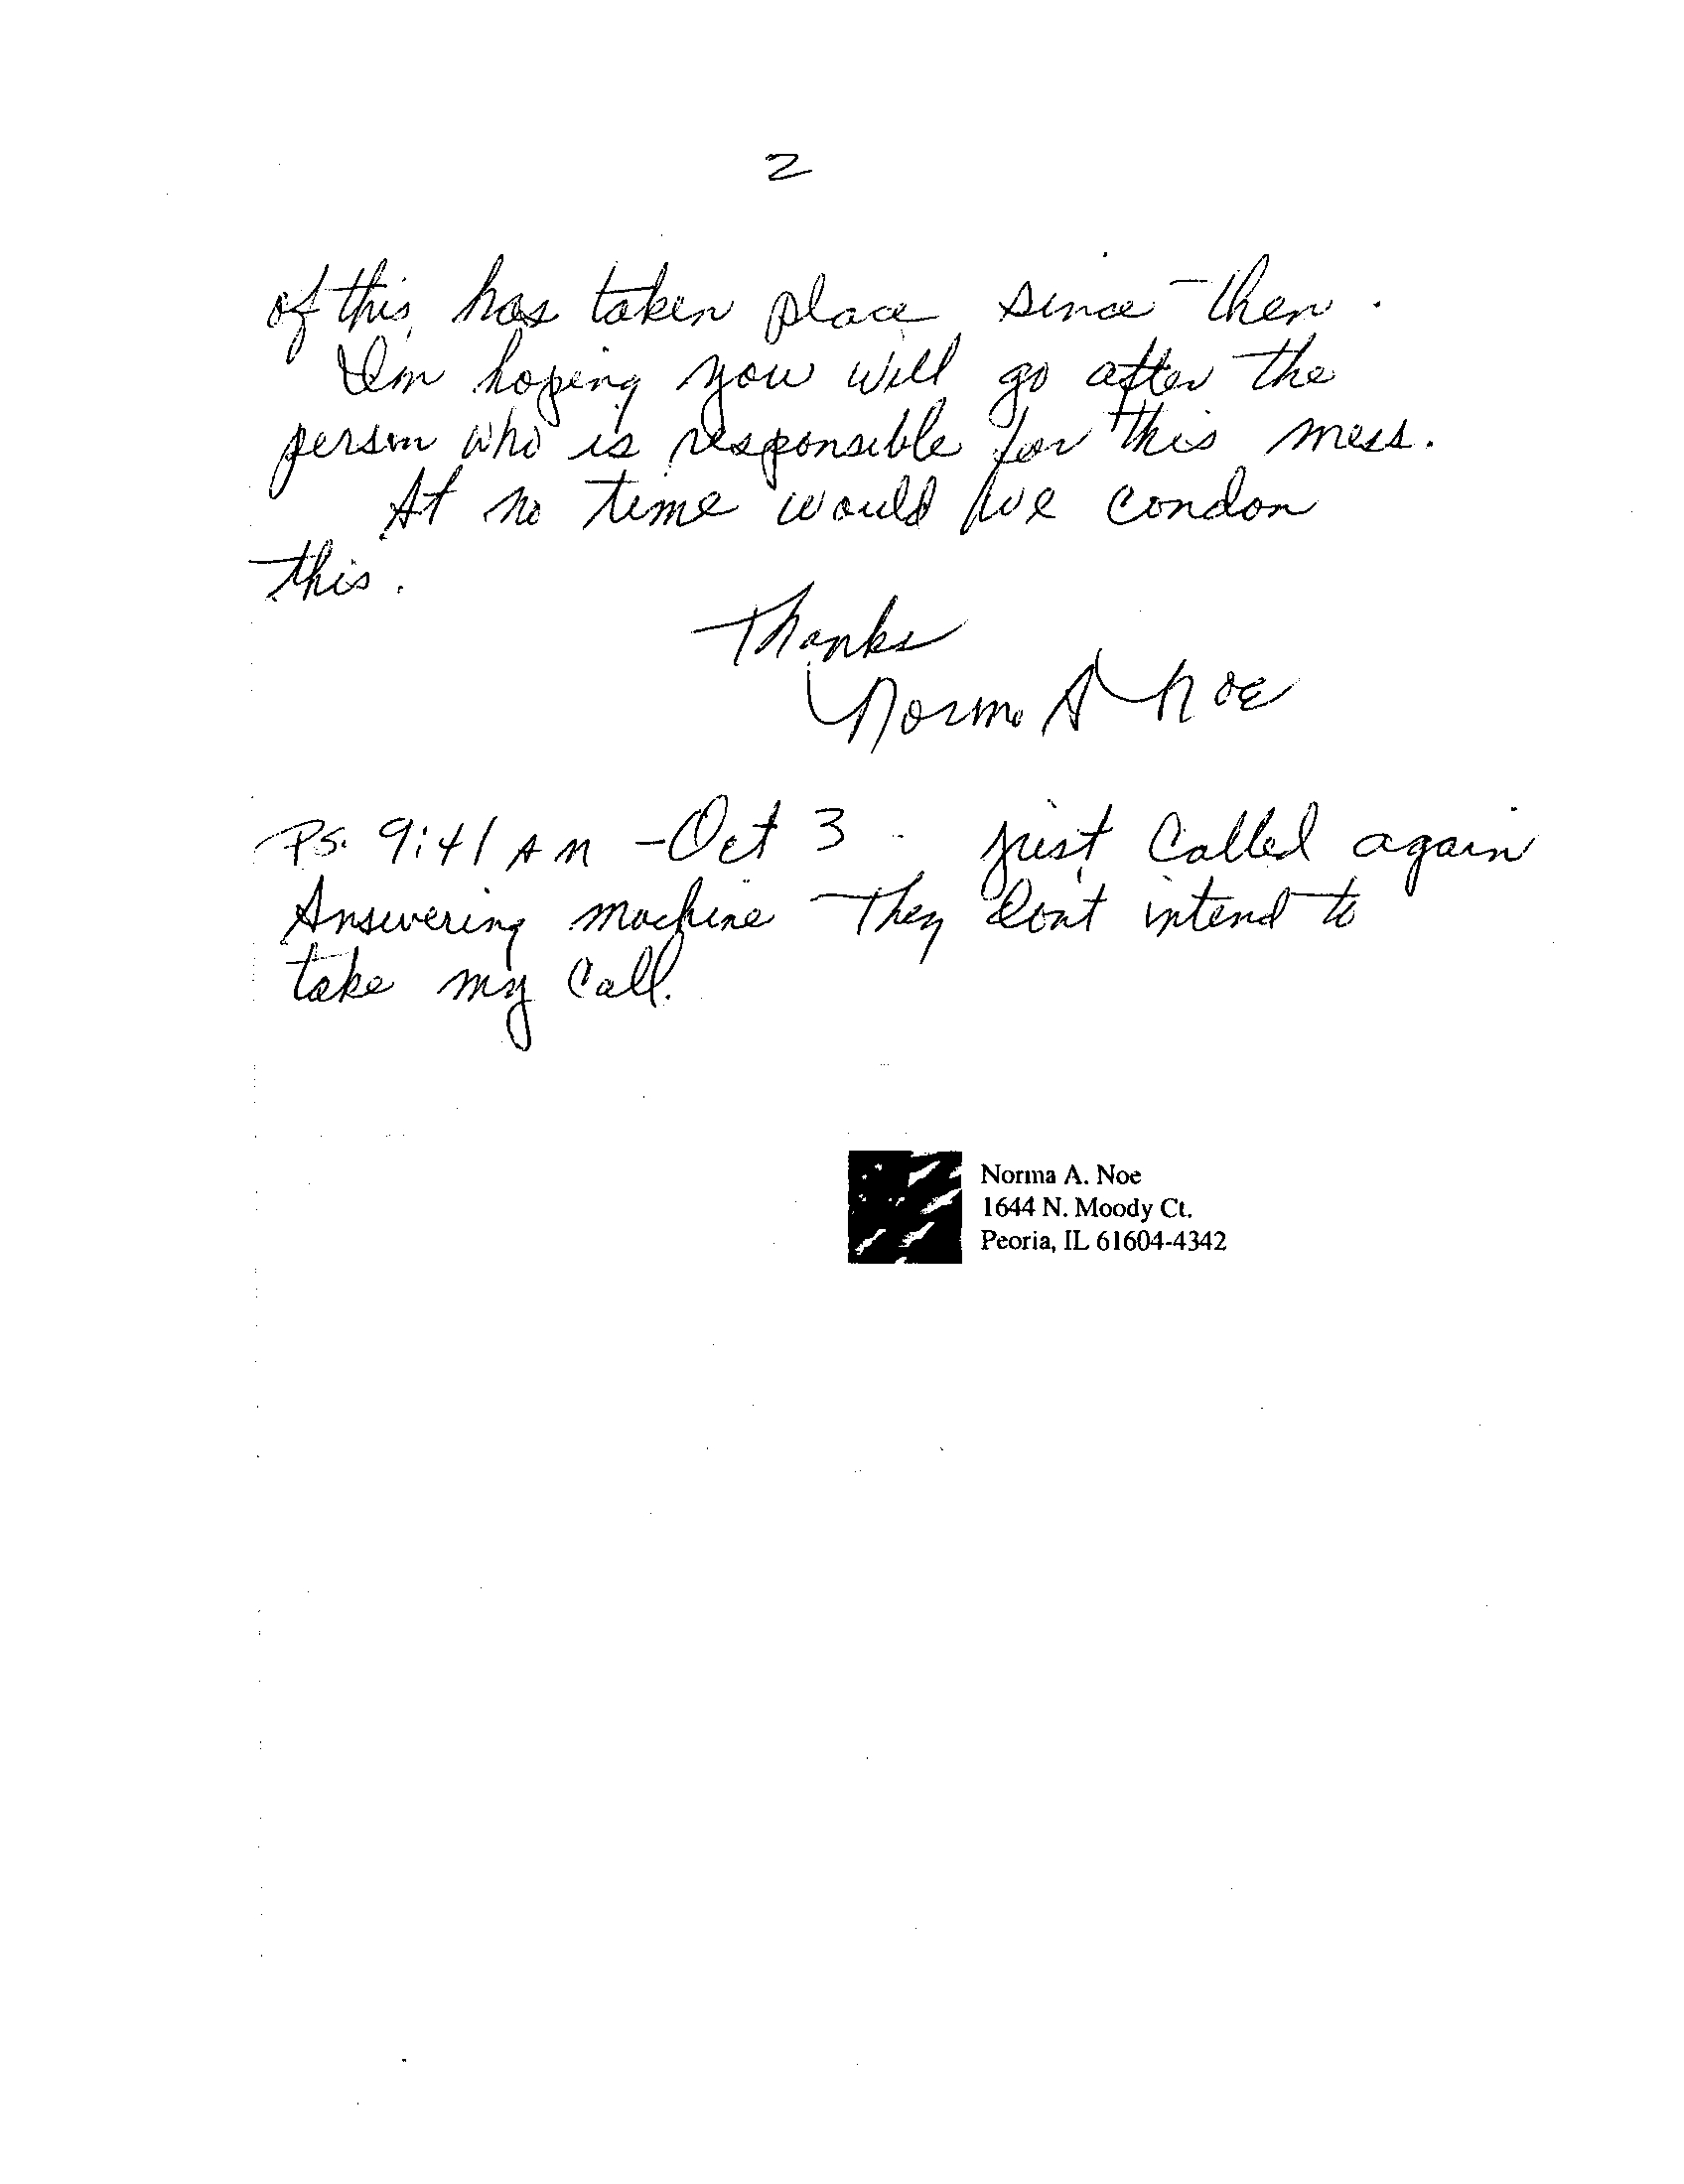 2
of this has taken place since then.
Im hoping you will go after the
person who is responsible for this mess.
At no time would we condon
this.
Thanks
Norma A Noe
Ps. 9:41 AM - Oct 3 - just called again
Answering machine They dont intend to
take my call.
Norma A. Noe
1644 N. Moody Ct.
Peoria, IL 61604-4342